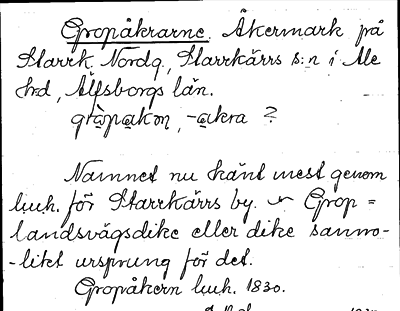 Gropåkrarne. Åkermark på
Starrk. Nordg, Starrkärrs s:n i Ale
hd, Älfsborgs län.
-åkra ?
Namnet nu känt mest genom
luh. för Starrkärrs by. Grop =
landsvägsdike eller dike sanno-
-likt ursprung för det.
Gropåkern luh. 1830.